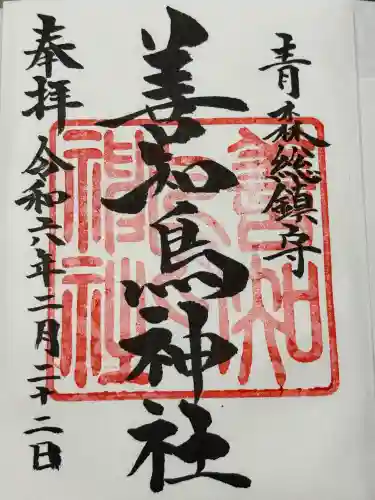 青森総鎮守
善知鳥神社
奉拝
令和六年二月二十二日
善知
鳥
神社